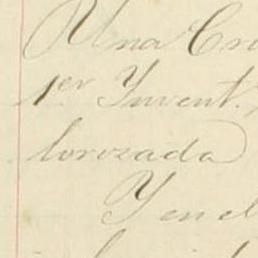 Una Cru
1er Invent.
lorozada
Y en el